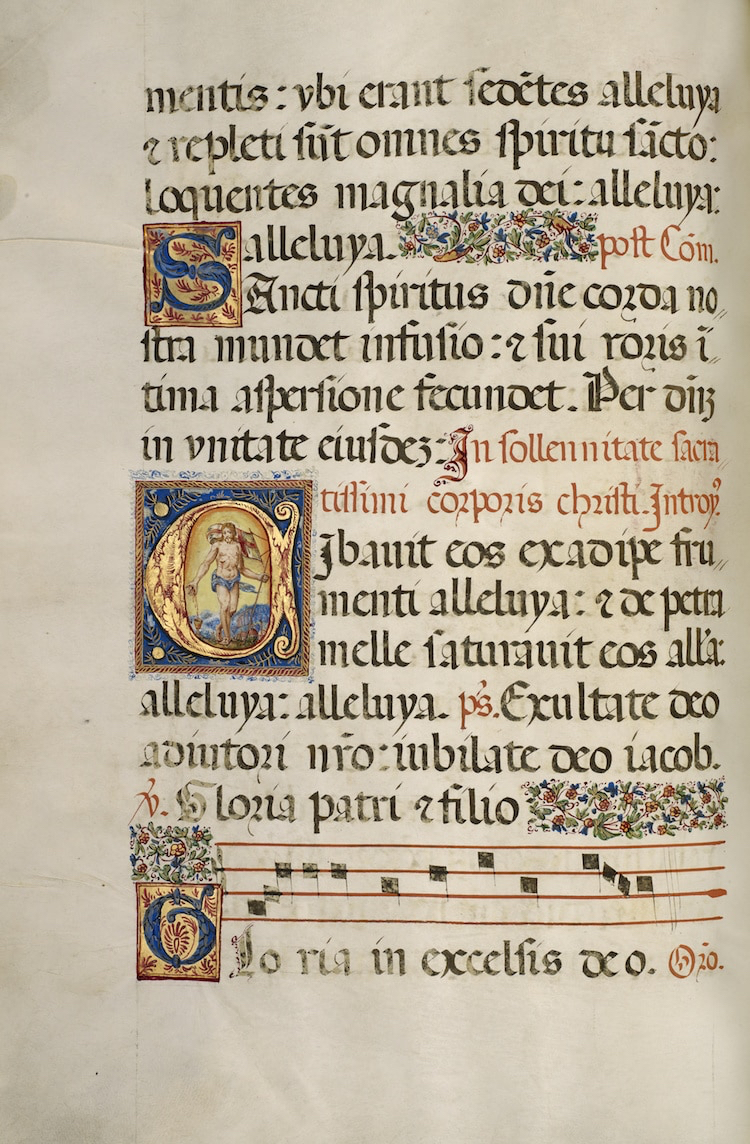 mentis: vbi erant sedẽtes alleluya
⁊ repleti sũt omnes spiritu sãcto:
loquentes magnalia dei: alleluya:
alleluya. post Cõm.
SAncti spiritus dñe corda no„
stra mundet infusio: ⁊ sui roris ĩ„
tima aspersione fecundet. Per dñȝ
in vnitate eiusdeȝ: In sollennitate sacra
tissimi corporis christi. Introy̾.
CIbauit eos exadipe fru„
menti alleluya: ⁊ de petra
melle saturauit eos all'a:
alleluya: alleluya. p̃s. Exultate deo
adiutori nr̃o: iubilate deo iacob.
℣. Gloria patri ⁊ filio
GLo ria in excelsis deo. Orõ.